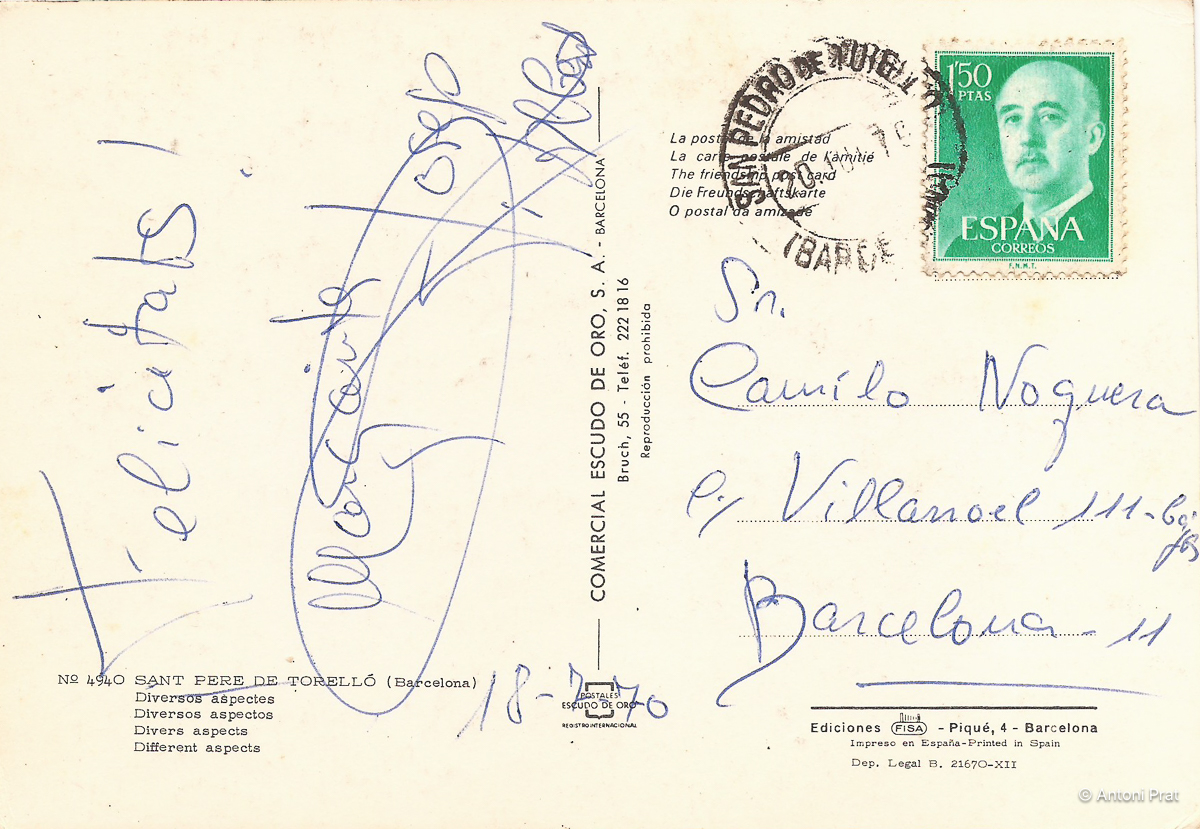 Felicitats!
Nº 4940 SANT PERE DE TORELLÓ (Barcelona)
Diversos aspectes
Diversos aspectos
Divers aspects
Different aspects
18-7-70
COMERCIAL ESCUDO DE ORO, S. A. - BARCELONA
Bruch, 55 - Teléf. 222 18 16
Reproducción prohibida
POSTALES
ESCUDO DE ORO
REGISTRO INTERNACIONAL
La postal de la amistad
La carte postale de l'amitié
The friendship post card
Die Freundschaftskarte
O postal da amizade
SAN PEDRO DE TORELLO
20 JUL 70
(BARCE
1'50
PTAS
ESPAÑA
CORREOS
F.N.M.T.
Sr.
Camilo Noguera
c/ Villarroel 111-bajos
Barcelona - 11
Ediciones FISA - Piqué, 4 - Barcelona
Impreso en España-Printed in Spain
Dep. Legal B. 21670-XII
© Antoni Prat